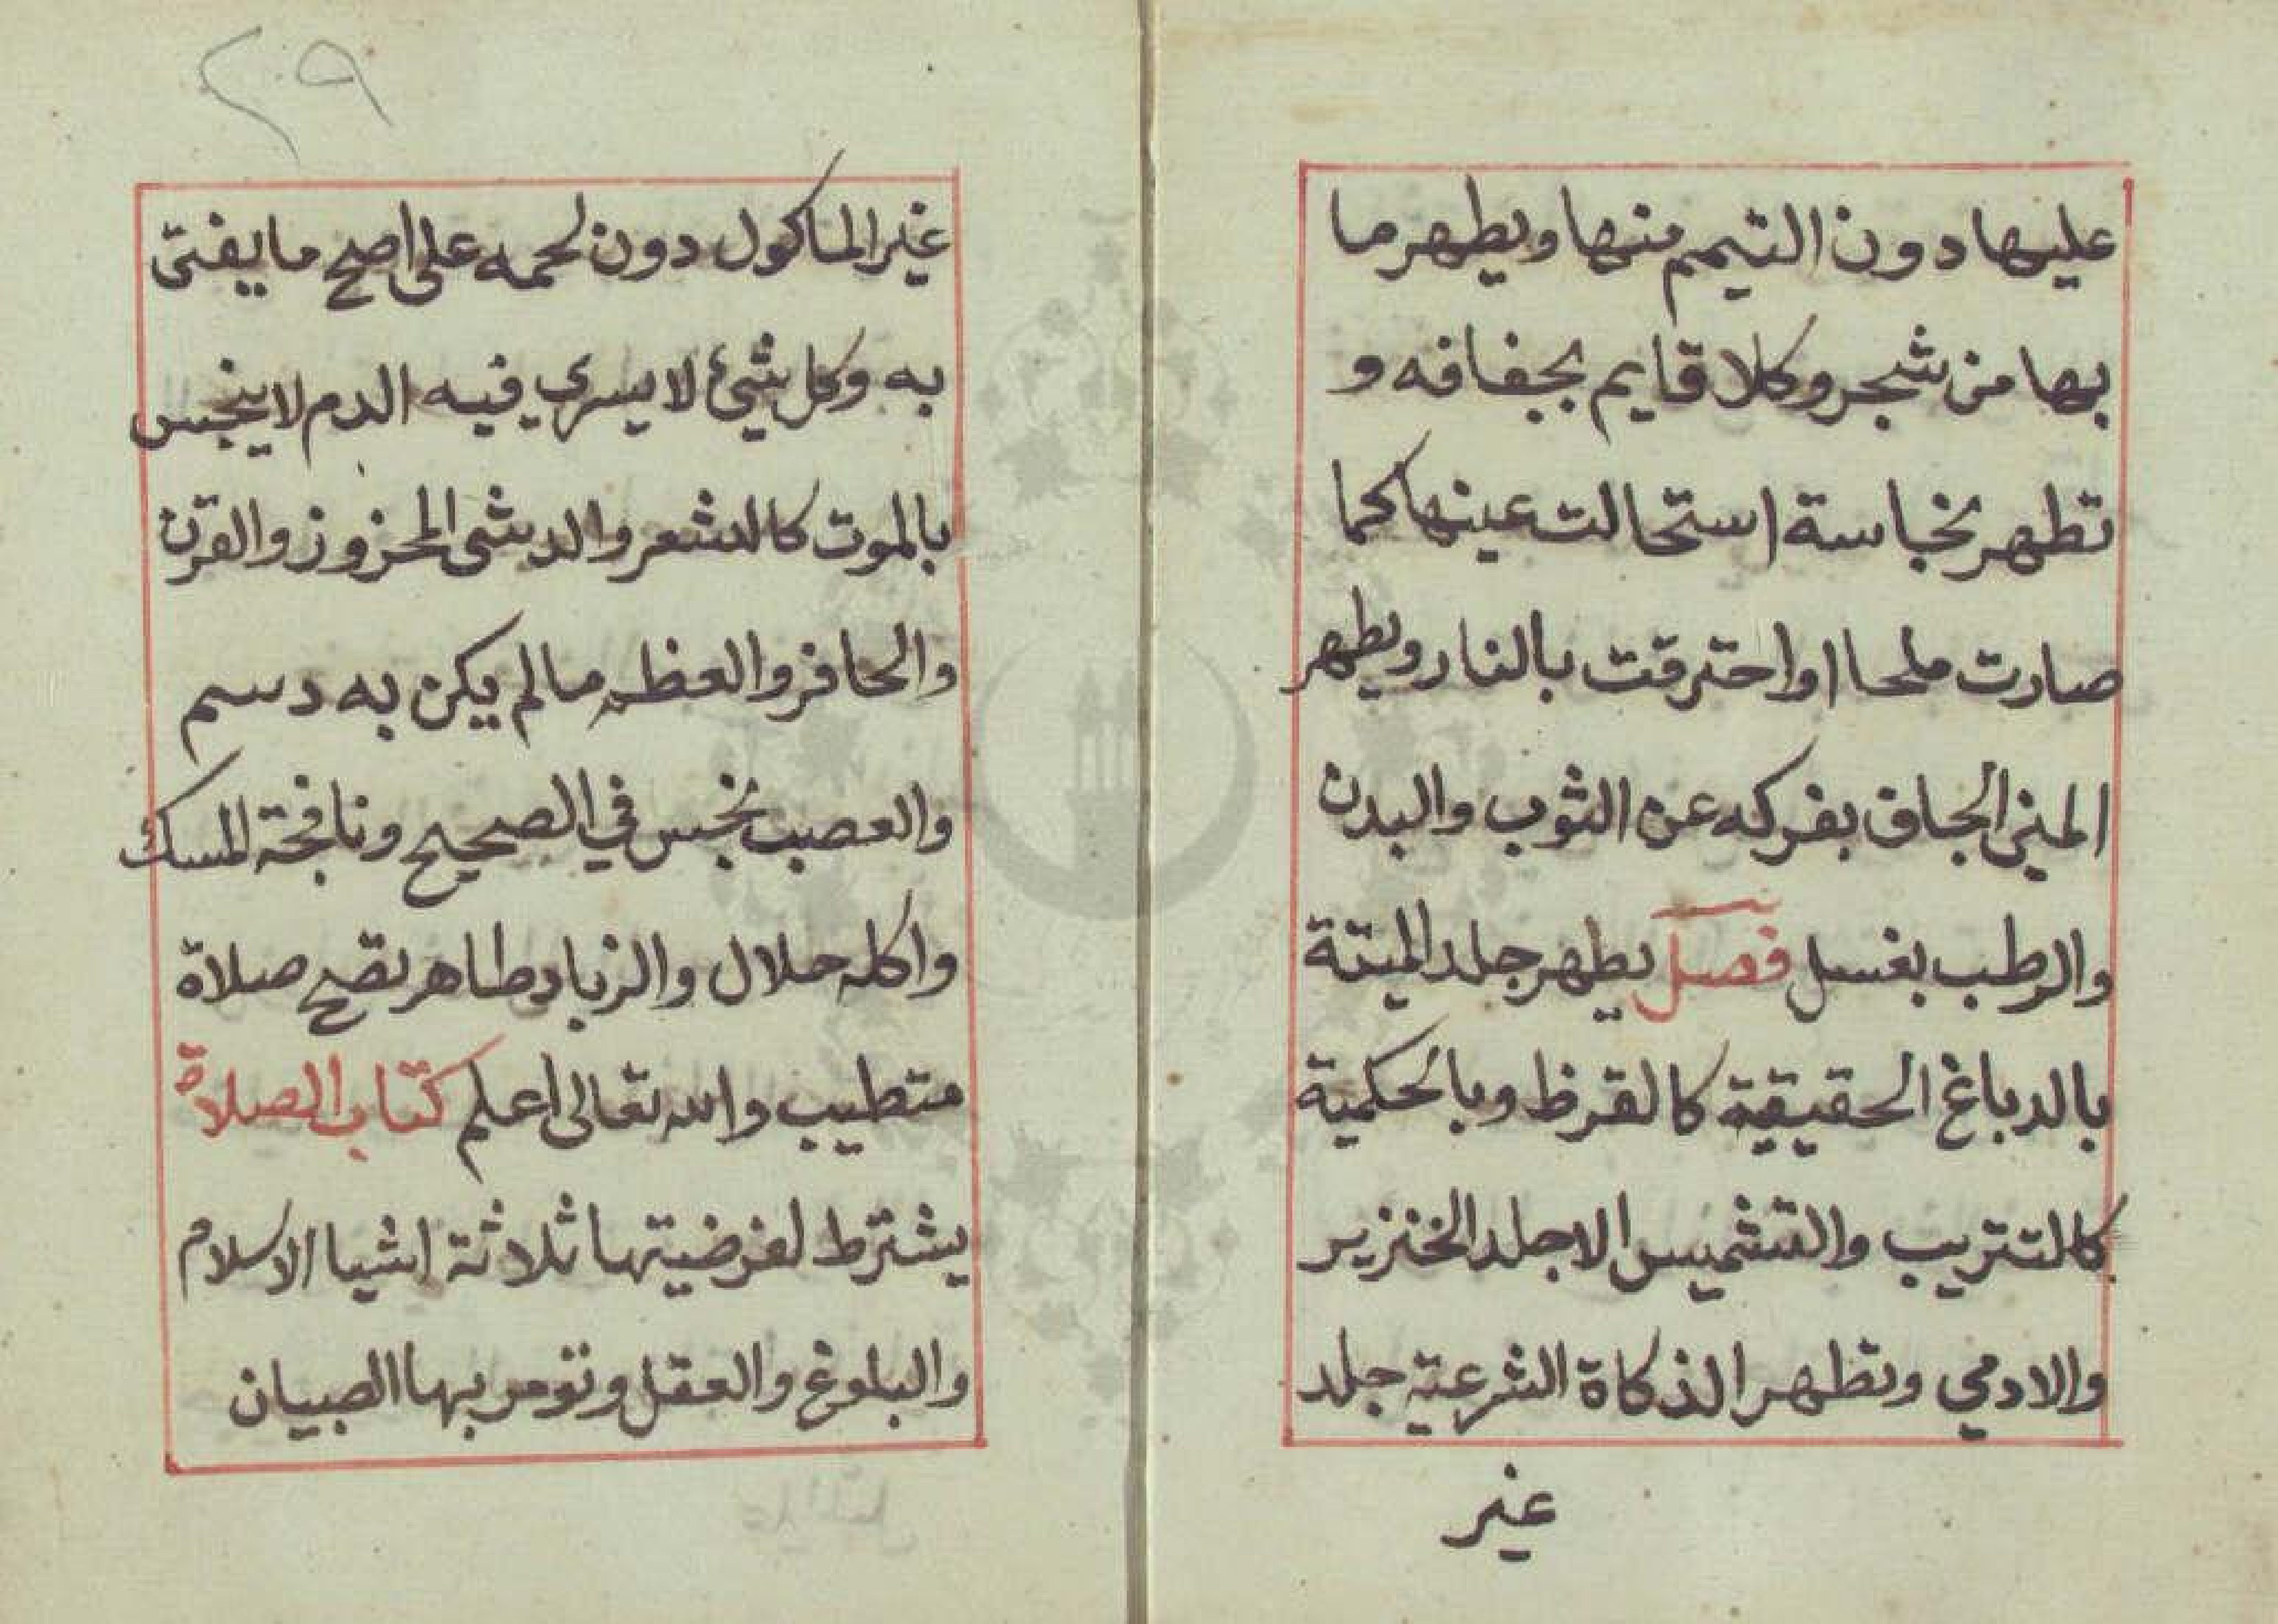 عليها دون التيمم منها ويطهر ما
بها من شجر وكلا قايم بجفافه و
تطهر نجاسة استحالت عينها كما
صارت ملحا او احترقت بالنار ويطهر
المني الجاف بفركه عن الثوب والبدن
والرطب بغسل فصل يطهر جلد الميتة
بالدباغ الحقيقية كالقرظ وبالحكمية
كالتتريب والتشميس الا جلد الخنزير
والادمي وتطهر الذكاة الشرعية جلد
غير
٢٩
غير الماكول دون لحمه على اصح ما يفتى
به وكل شيئ لا يسري فيه الدم لا ينجس
بالموت كالشعر والدشى المحزوز والقرن
والحافر والعظم ما لم يكن به دسم
والعصب نجس في الصحيح ونافجة المسك
واكله حلال والزباد طاهر تصح صلاة
متطيب والله تعالى اعلم كتاب الصلاة
يشترط لفرضيتها ثلاثة اشيا الاسلام
والبلوغ والعقل وتومر بها الصبيان